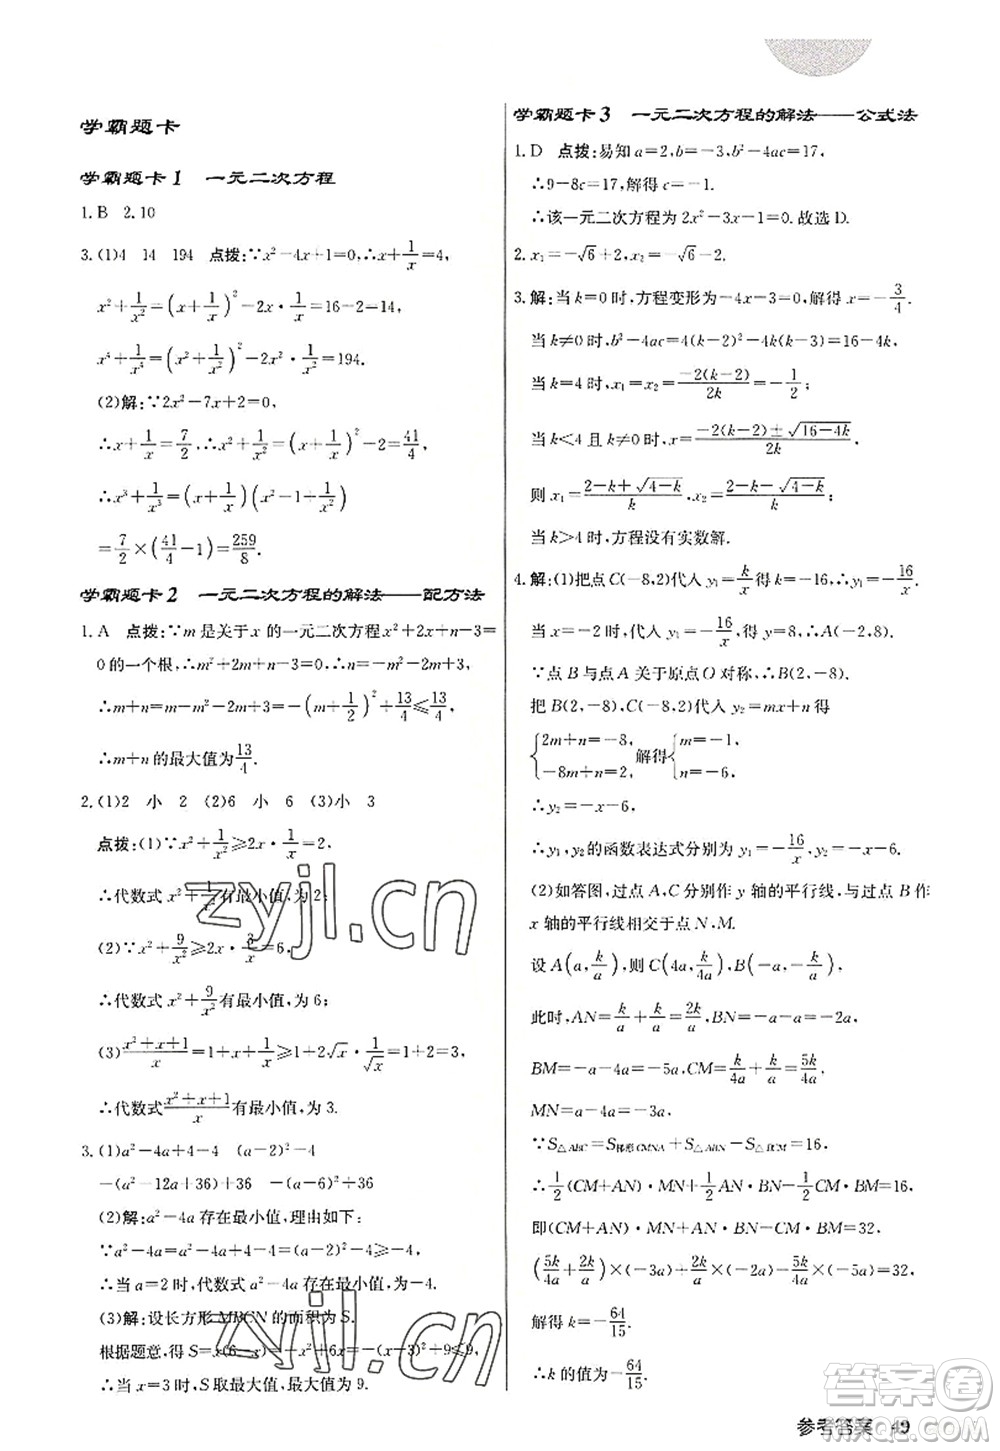 学霸题卡
学霸题卡1 一元二次方程
1.B 2.10
3.(1)4 14 194 点拨:∵x²-4x+1=0,∴x+1/x=4,
x²+1/x²=(x+1/x)²-2x·1/x=14,
x⁴+1/x⁴=(x²+1/x²)²-2x²·1/x²=194.
(2)解:∵2x²-7x+2=0,
∴x+1/x=7/2,∴x²+1/x²=(x+1/x)²-2=41/4,
∴x³+1/x³=(x+1/x)(x²-1+1/x²)
=7/2×(41/4-1)=259/8.
学霸题卡2 一元二次方程的解法——配方法
1.A 点拨:∵m是关于x的一元二次方程x²+2x+n-3=
0的一个根,∴m²+2m+n-3=0,∴n=-m²-2m+3,
∴m+n=-m²-m+3=-(m+1/2)²+13/4≤13/4,
∴m+n的最大值为13/4.
2.(1)2 小 2 (2)6 小 6 (3)小 3
点拨:(1)∵x²+1/x²≥2x·1/x=2,
∴代数式x²+1/x²有最小值,为2;
(2)∵x²+9/x²≥2x·3/x=6,
∴代数式x²+9/x²有最小值,为6;
(3)(x²+x+1)/x=1+x+1/x≥1+2√x·1/√x=1+2=3,
∴代数式(x²+x+1)/x有最小值,为3.
3.(1)a²-4a+4-4 (a-2)²-4
-(a²-12a+36)+36 -(a-6)²+36
(2)解:a²-4a存在最小值,理由如下:
∵a²-4a=a²-4a+4-4=(a-2)²-4≥-4,
∴当a=2时,代数式a²-4a存在最小值,为-4.
(3)解:设长方形MBCN的面积为S.
根据题意,得S=x(6-x)=-x²+6x=-(x-3)²+9≤9,
∴当x=3时,S取最大值,最大值为9.
学霸题卡3 一元二次方程的解法——公式法
1.D 点拨:易知a=2,b=-3,b²-4ac=17,
∴9-8c=17,解得c=-1.
∴该一元二次方程为2x²-3x-1=0.故选D.
2.x₁=-√6+2,x₂=-√6-2.
3.解:当k=0时,方程变形为-4x-3=0,解得x=-3/4.
当k≠0时,b²-4ac=4(k-2)²-4k(k-3)=16-4k,
当k=4时,x₁=x₂=-2(k-2)/2k=-1/2;
当k<4且k≠0时,x=(-2(k-2)±√(16-4k))/2k,
则x₁=(2-k+√(4-k))/k,x₂=(2-k-√(4-k))/k;
当k>4时,方程没有实数解.
4.解:(1)把点C(-8,2)代入y₁=k/x得k=-16,∴y₁=-16/x.
当x=-2时,代入y₁=-16/x得y=8,∴A(-2,8).
∵点B与点A关于原点O对称,∴B(2,-8).
把B(2,-8),C(-8,2)代入y₂=mx+n得
{2m+n=-8, -8m+n=2, 解得{m=-1, n=-6,
∴y₂=-x-6,
∴y₁,y₂的函数表达式分别为y₁=-16/x,y₂=-x-6.
(2)如答图,过点A,C分别作y轴的平行线,与过点B作
x轴的平行线相交于点N,M.
设A(a,k/a),则C(4a,k/4a),B(-a,-k/a),
此时,AN=k/a+k/a=2k/a,BN=-a-a=-2a,
BM=-a-4a=-5a,CM=k/4a+k/a=5k/4a,
MN=a-4a=-3a,
∵S△ABC=S梯形CMNA+S△ABN-S△BCM=16,
∴1/2(CM+AN)·MN+1/2AN·BN-1/2CM·BM=16,
即(CM+AN)·MN+AN·BN-CM·BM=32,
(5k/4a+2k/a)×(-3a)+2k/a×(-2a)-5k/4a×(-5a)=32,
解得k=-64/15.
∴k的值为-64/15.
zyjl.cn
zyjl.cn
答案圈
参考答案 49